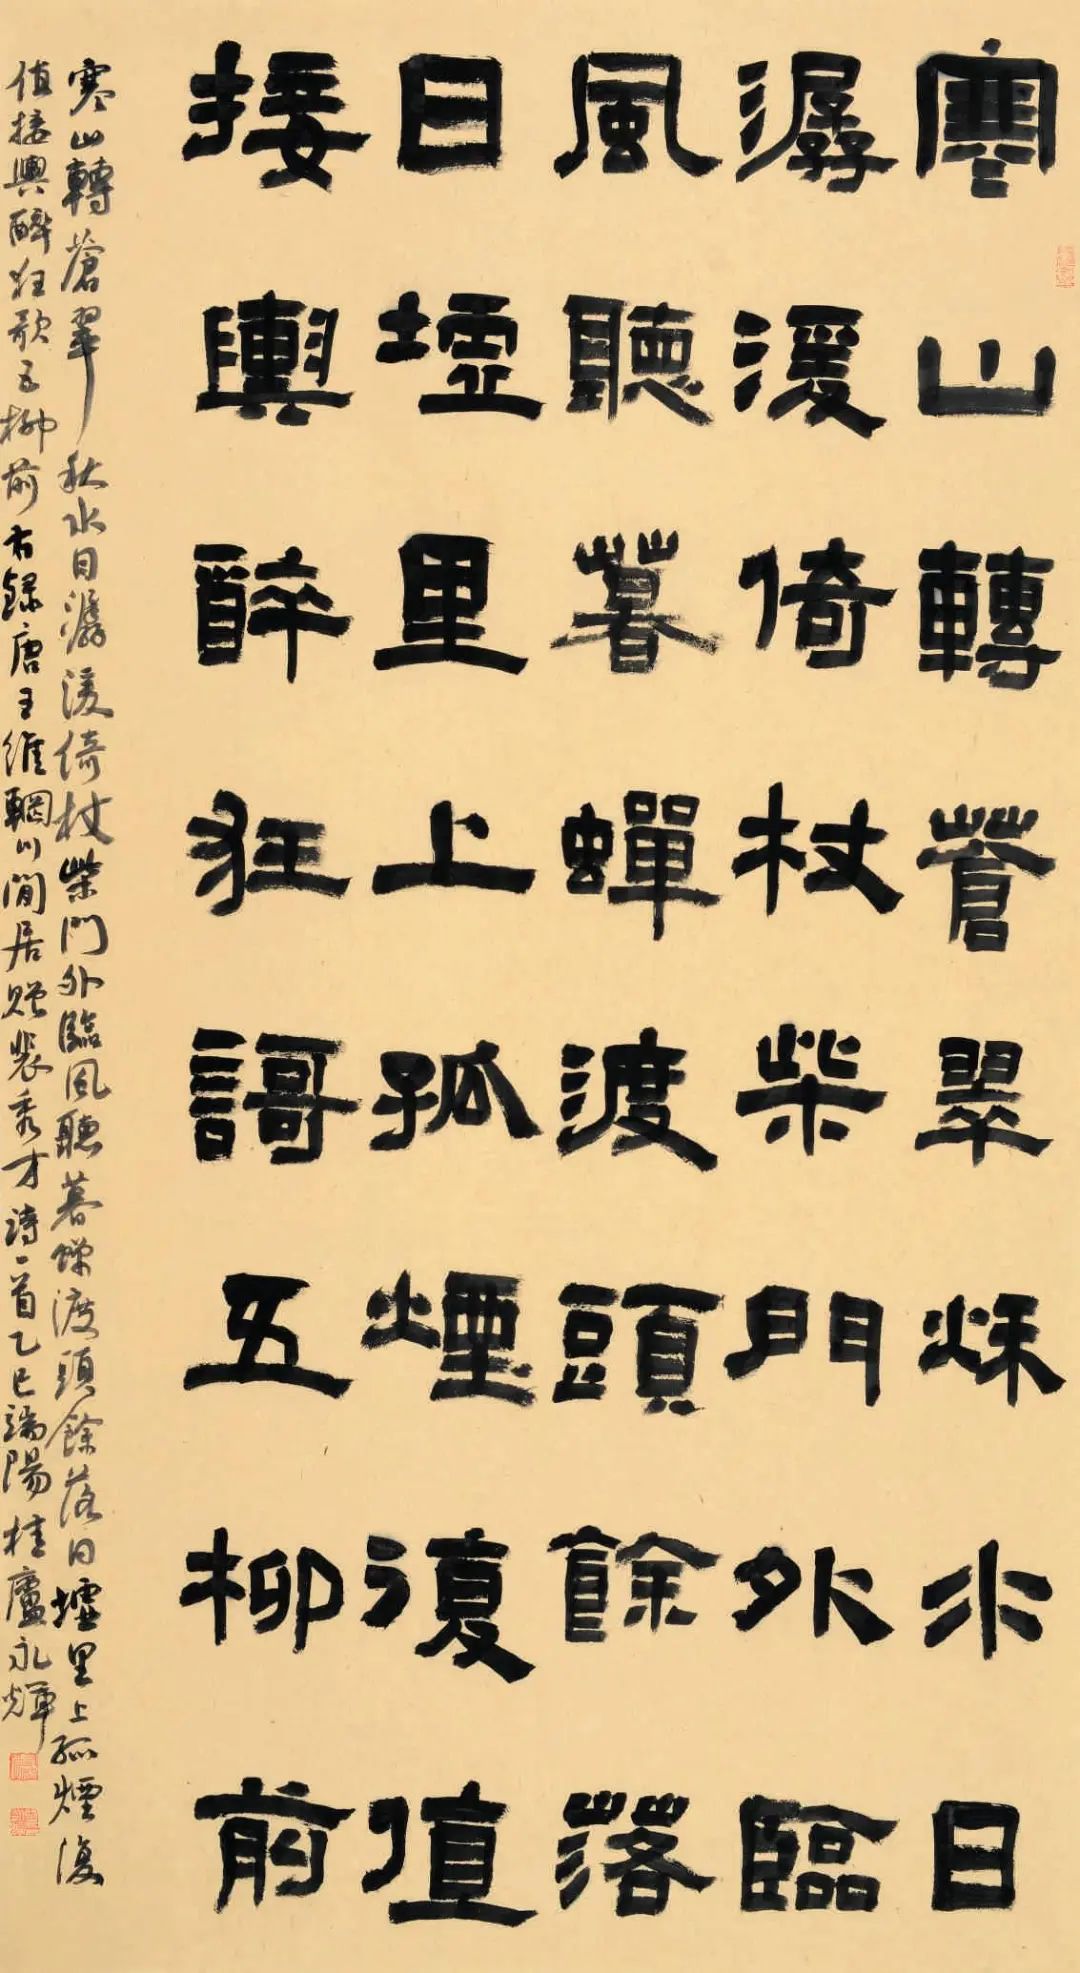 寒山轉蒼翠秌水日
潺湲倚杖柴門外臨
風聽暮蟬渡頭餘落
日墟里上孤煙復值
接輿醉狂謌五柳前
寒山轉蒼翠秋水日潺湲倚杖柴門外臨風聽暮蟬渡頭餘落日墟里上孤煙復
值接輿醉狂歌五柳前右錄唐王維輞川閒居贈裴秀才詩一首乙巳端陽桂廬永輝